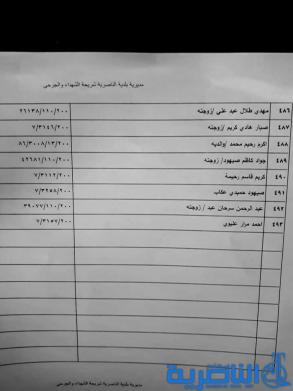 مديرية بلدية الناصرية شريحة الشهداء والجرحى
٤٨٦ مهدي طلال عبد علي /زوجته ٢٠٠/١١٠/٧٦١٣٨
٤٨٧ صبار هادي كريم /زوجته ٢٠٠/٧/٣١٤٦
٤٨٨ اكرم رحيم محمد /والديه ٢٠٠/١٣/٨٦/٣٠٠٨
٤٨٩ جواد كاظم صيهود/ زوجته ٢٠٠/١١٠/٤٢٦٨١
٤٩٠ كريم قاسم رحيمة ٢٠٠/٧/٣١١٢
٤٩١ صيهود حميدي عكاب ٢٠٠/٧/٣٢٥٨
٤٩٢ عبد الرحمن سرحان عبد / زوجته ٢٠٠/١١٠/٣٩٠٧٧
٤٩٣ احمد مرار عليوي ٢٠٠/٧/٣١٥٧
الناصرية
مديرية بلدية الناصرية شريحة الشهداء والجرحى